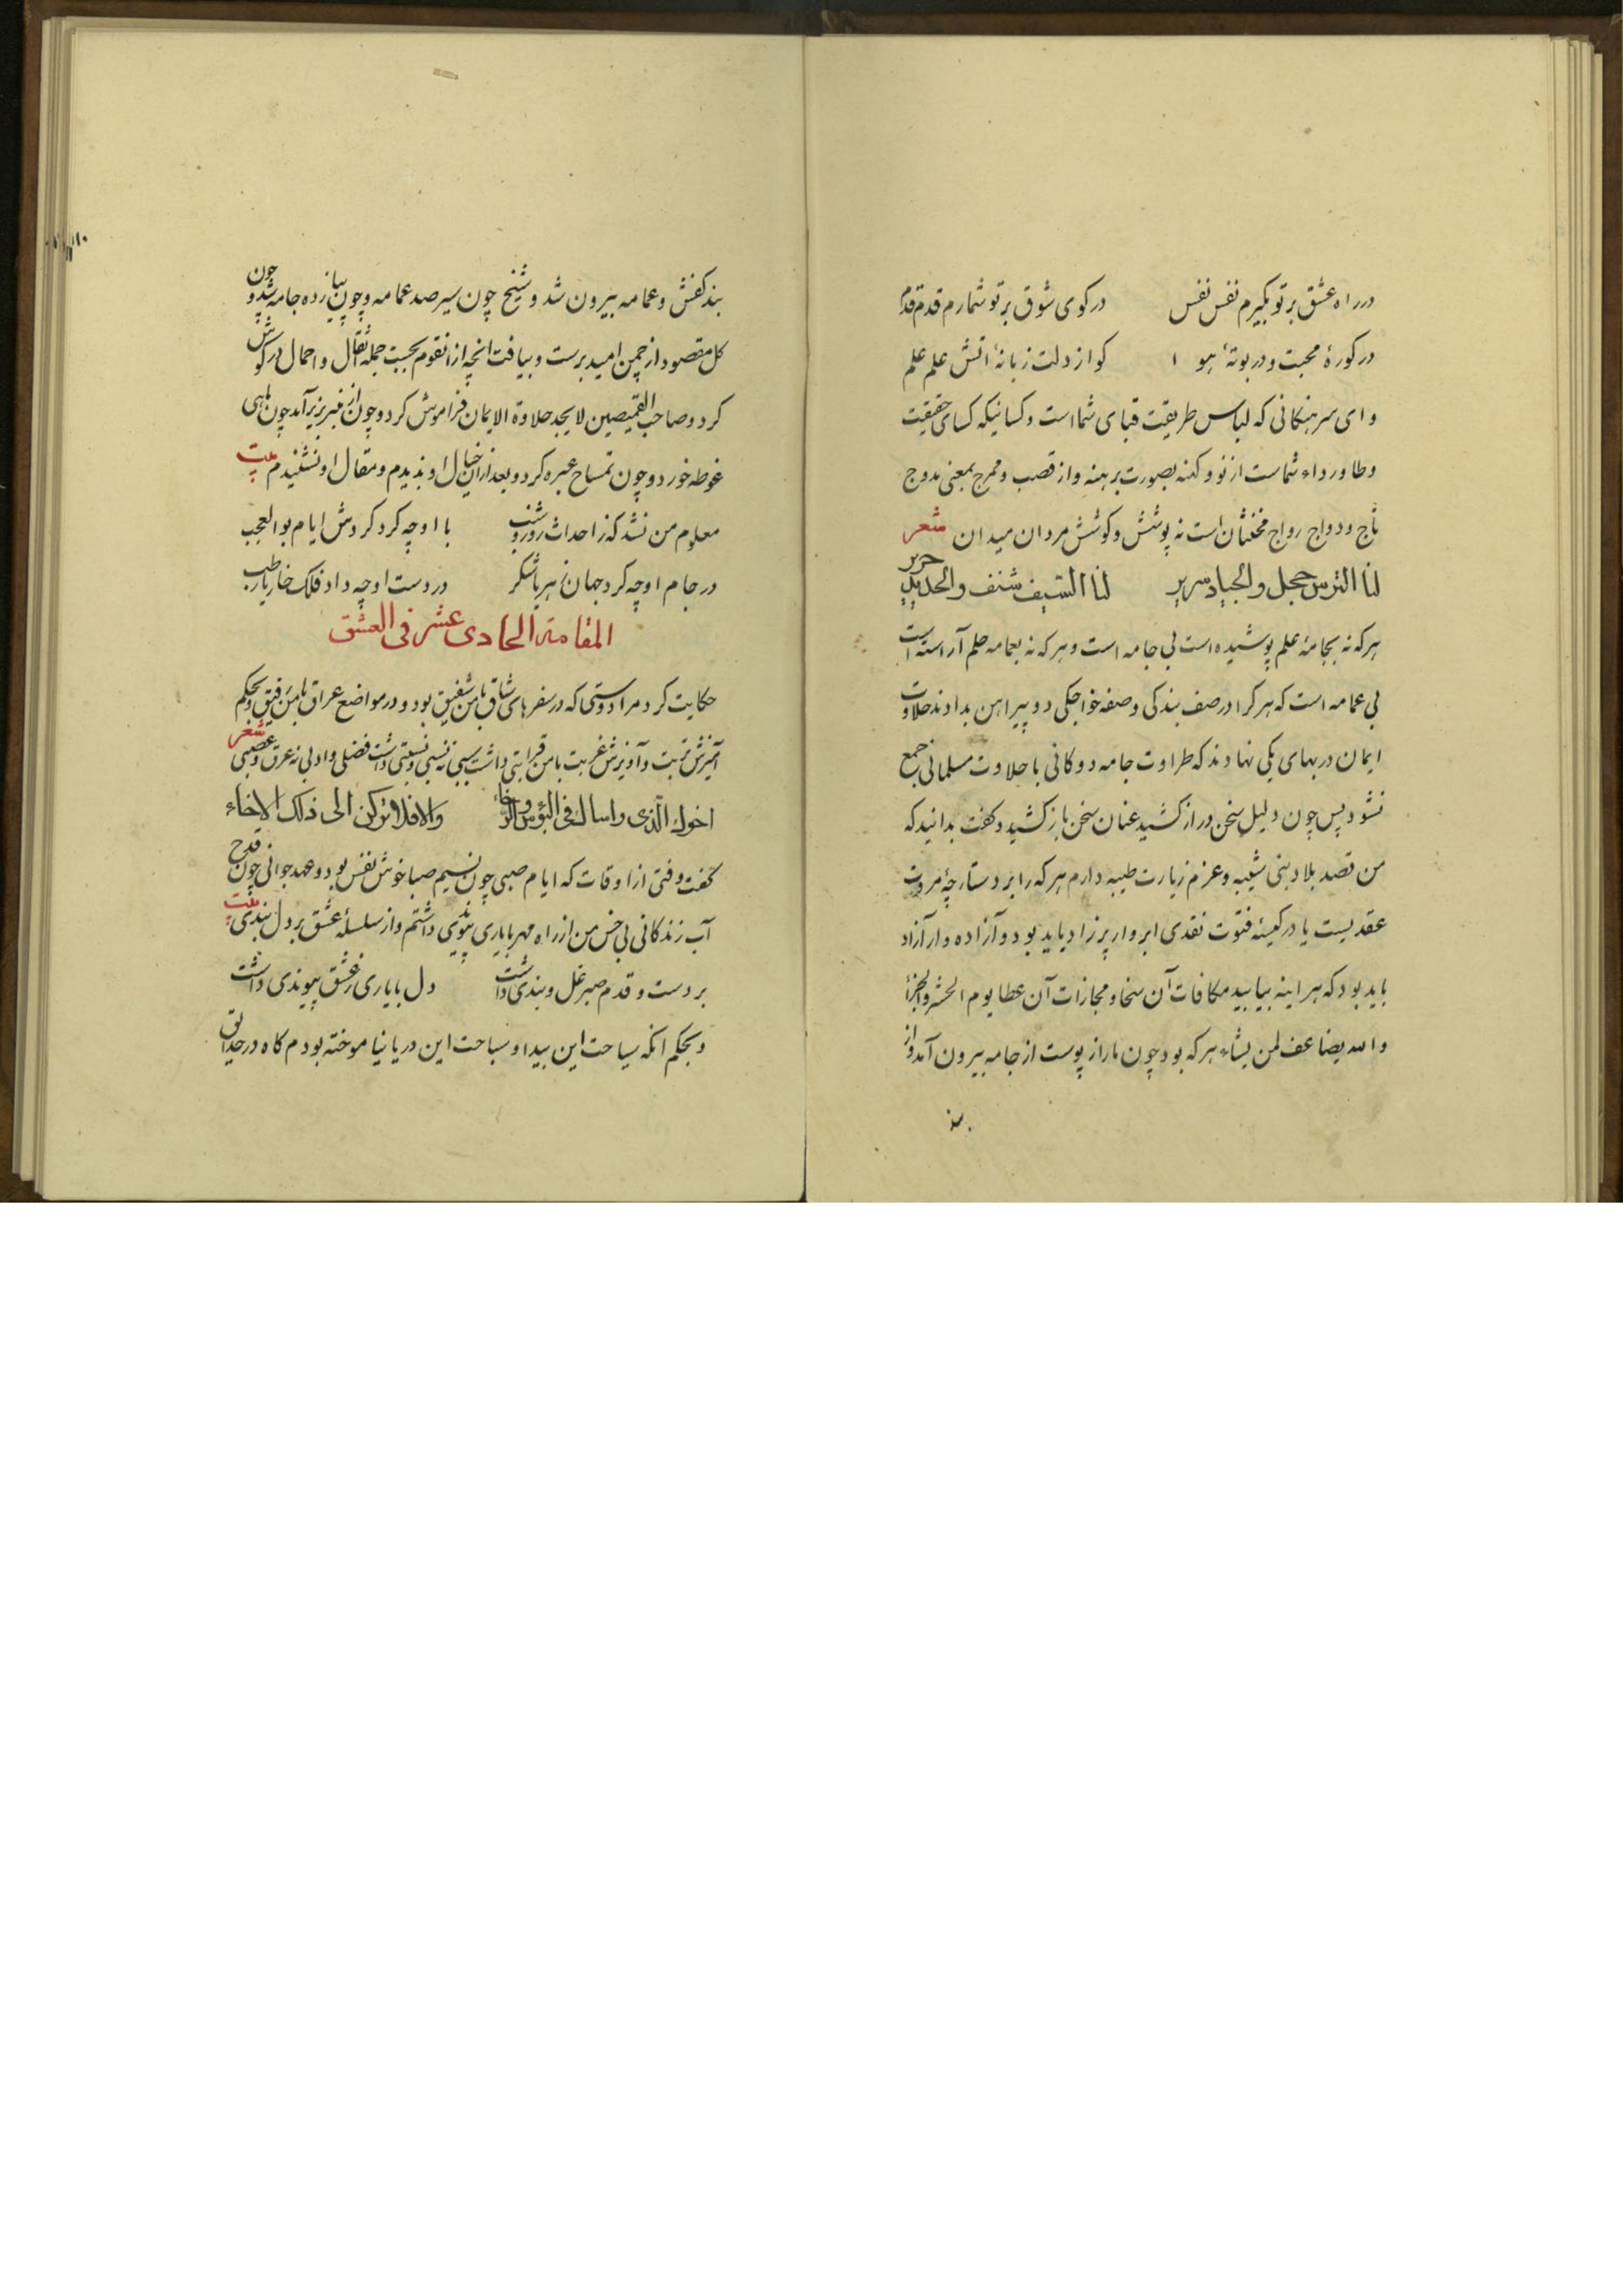 در راه عشق بر تو بگیرم نفس نفس در کوی شوق بر تو شمارم قدم قدم
در کورهٔ محبت و در بوتهٔ هوا کو از دلت زبانهٔ اتش علم علم
و ای سرهنکانی که لباس طریقت قبای شما است و کسانیکه کسای حقیقت
وطا و رداء شماست از نو و کهنه بصورت برهنه و از قصب و ممزج بمعنی مدوج
تاج و دواج رواج مخنثان است نه پوشش و کوشش مردان میدان شعر
لنا الترس حجل والجیاد سریر لنا السیف شنف والحدید حریر
هر که نه بجامهٔ علم پوشیده است بی جامه است و هر که نه بعمامه حلم آراسته است
بی عمامه است که هر کرا در صف بندکی و صفه خواجکی دو پیراهن بدادند حلاوت
ایمان در بهای یکی نهادند که طراوت جامه دوکانی با حلاوت مسلمانی جمع
نشود پس چون دلیل سخن دراز کشید عنان سخن باز کشید و کفت بدانید که
من قصد بلاد بنی شیبه و عزم زیارت طیبه دارم هر که را بر دستارچهٔ مروت
عقدیست یا در کیسهٔ فتوت نقدی ابروار پر زاد باید بود و آزاده وار آزاد
باید بود که هر اینه بیابید مکافات آن سخا و مجازات آن عطا یوم الحشر والجزا
والله یضاعف لمن یشاء هر که بود چون مار از پوست از جامه بیرون آمد و از
بند کفش و عمامه بیرون شد و شیخ چون سیر صد عمامه و چون پیاز ده جامه شد و چون
کل مقصود از چمن امید برست و بیافت انچه از انقوم بجست جمله اثقال و احمال در کوش
کرد و صاحب القمیصین لا یجد حلاوة الایمان فراموش کرد و چون از منبر بزیر آمد چون ماهی
غوطه خورد و چون تمساح عبره کرد و بعد از ان خیال او ندیدم و مقال او نشنیدم بیت
معلوم من نشد که ز احداث روز و شب با او چه کرد کردش ایام بوالعجب
در جام او چه کرد جهان زهر یا شکر در دست او چه داد فلک خار یا رطب
المقامة الحادی عشر فی العشق
حکایت کرد مرا دوستی که در سفرهای شاق با من شفیق بود و در مواضع عراق با من رفیق و بحکم
آمیزش تربت و آویزش غربت با من قرابتی داشت سببی نه نسبی و نسبتی داشت فضلی و ادبی نه عرقی و عصبی شعر
اخوك الّذی واساك فی البؤس والرخاء والا فلا ترکن الی ذلك الاخاء
کفت وقتی از اوقات که ایام صبی چون نسیم صبا خوش نفس بود و عهد جوانی چون قدح
آب زندکانی بی خس من از راه مهر با یاری پیوندی داشتم و از سلسلهٔ عشق بر دل بندی بیت
بر دست و قدم صبر غل و بندی داشت دل با یاری ز عشق پیوندی داشت
و بحکم انکه سیاحت این بیدا و سباحت این دریا نیاموخته بودم کاه در حدائق